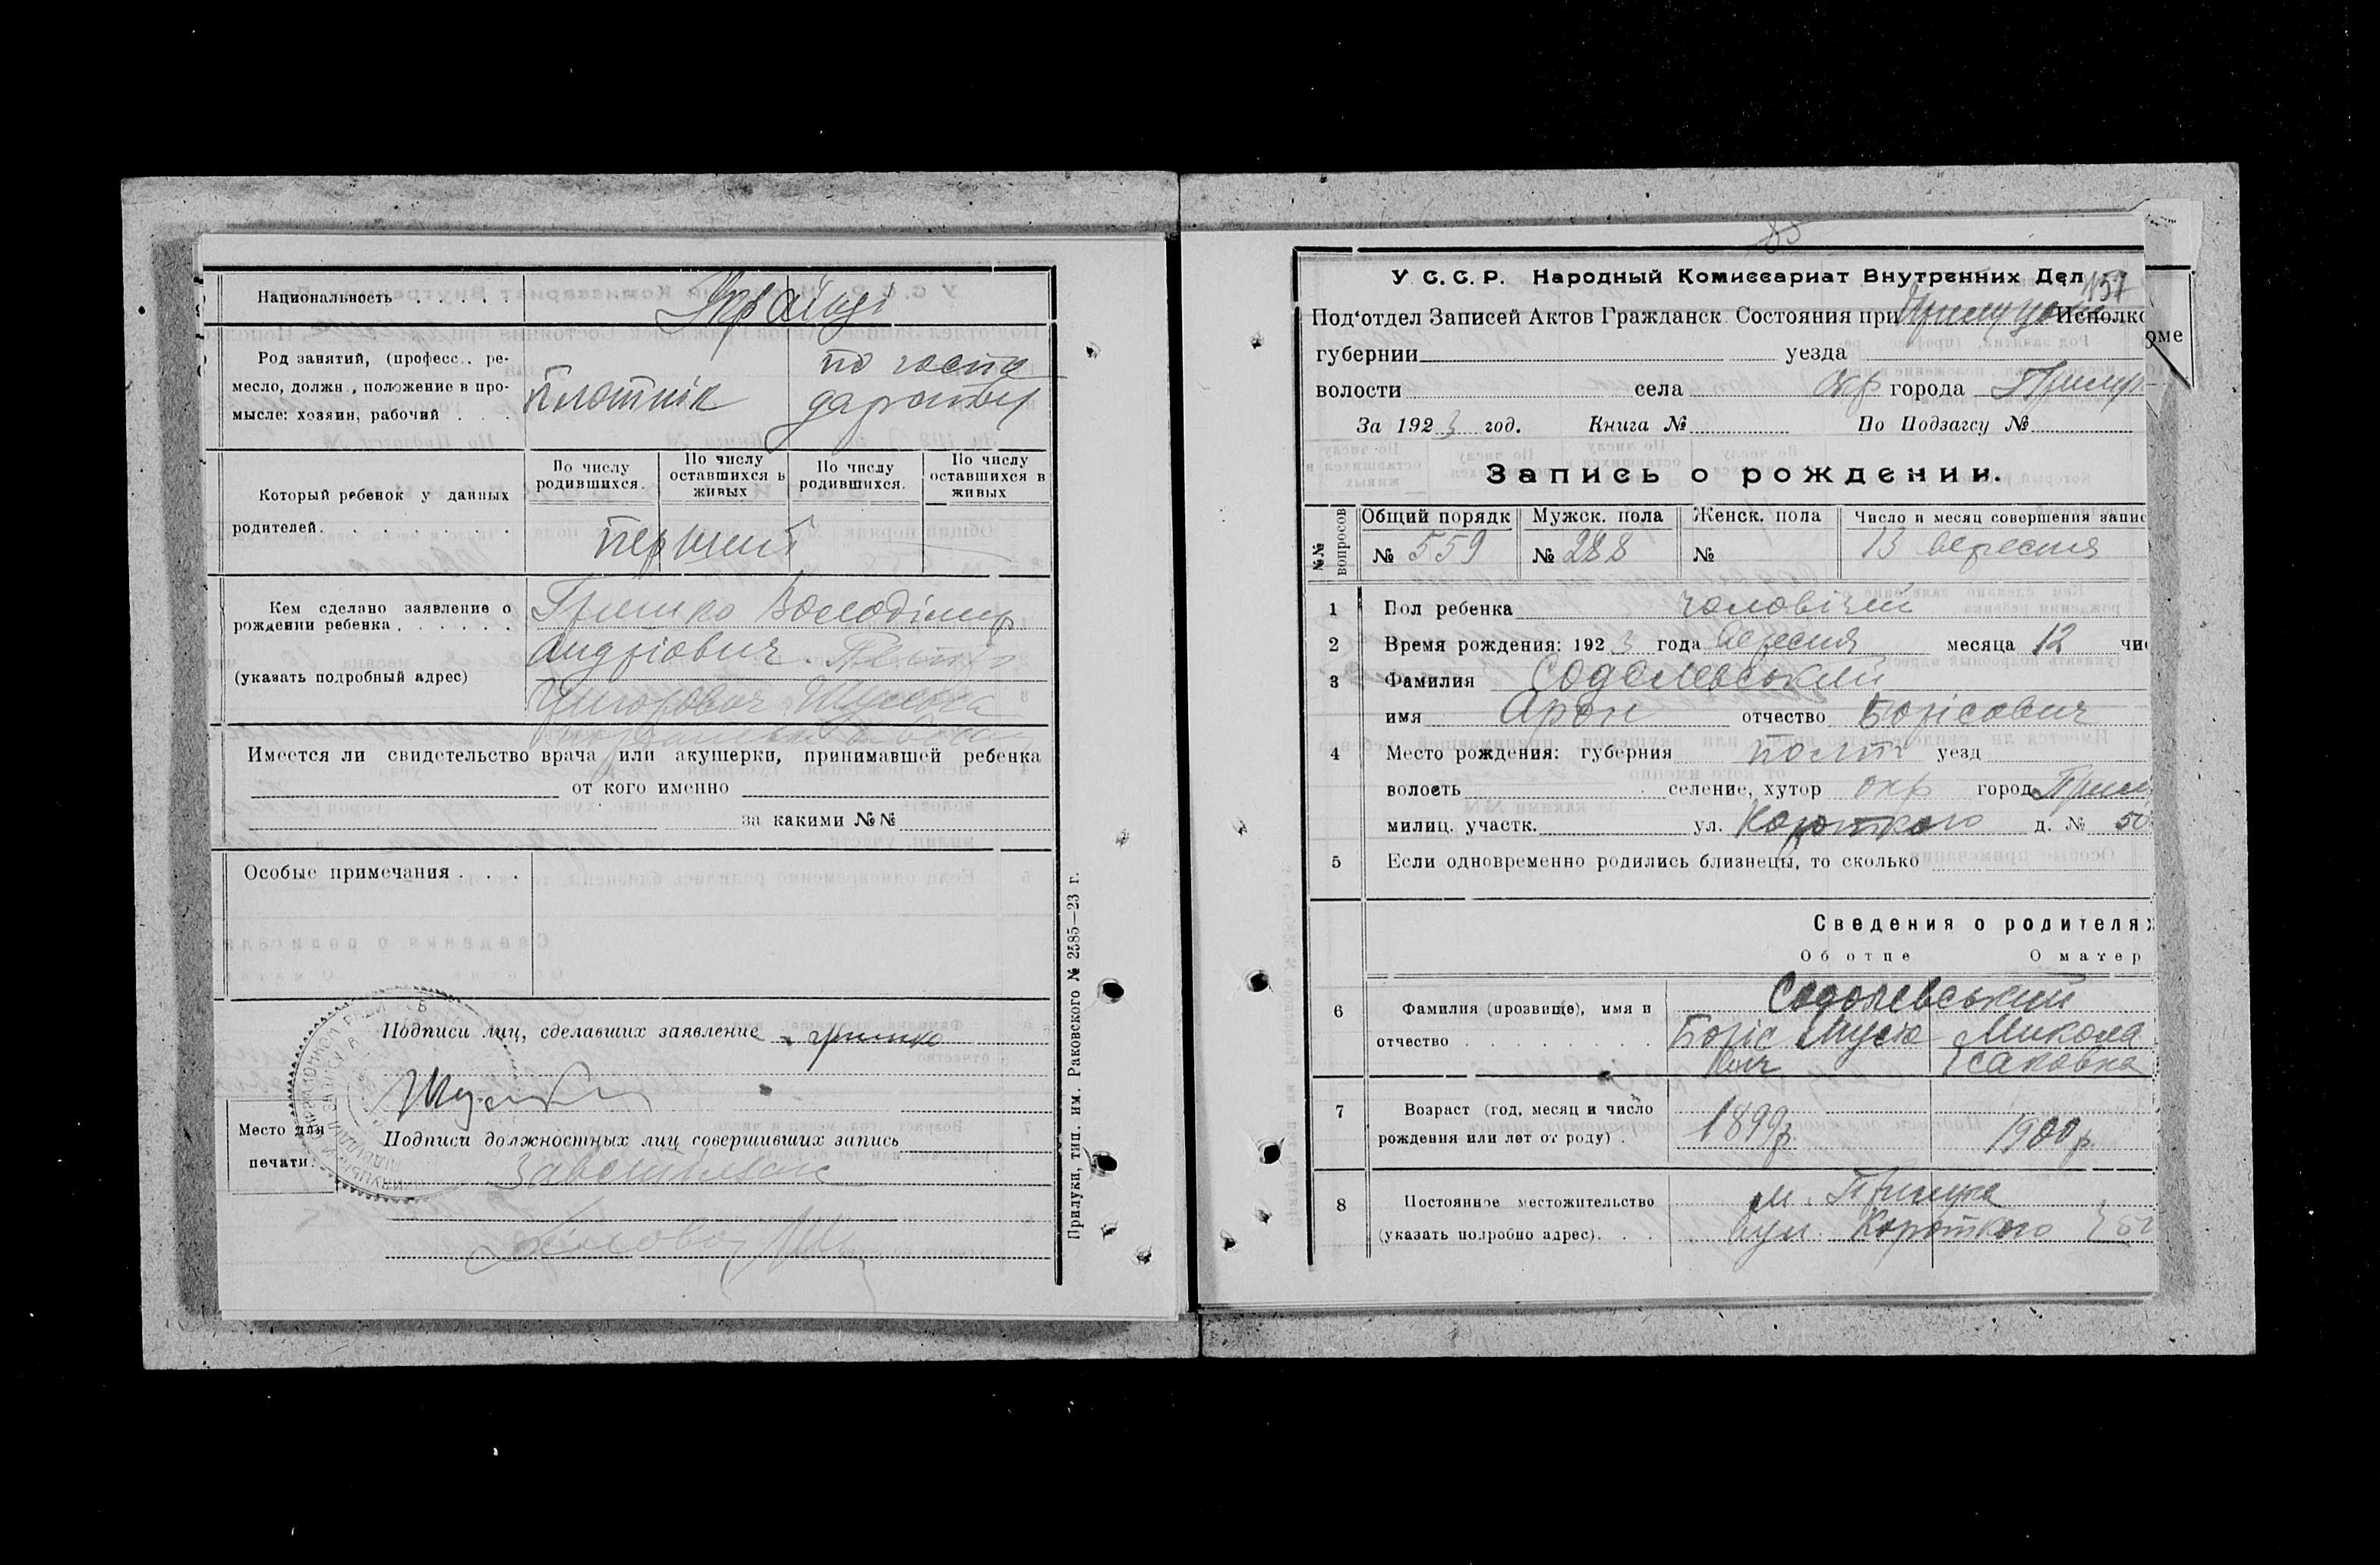 Национальность . . . . .
Українці
Род занятий, (професс.. ре-
месло, должн., положение в про-
мысле: хозяин, рабочий . . .
плотнік
по госпо
дарству
Который ребенок у данных
родителей. . . . . . . .
По числу
родившихся.
По числу
оставшихся в
живых
По числу
родившихся.
По числу
оставшихся в
живых
перший
Кем сделано заявление о
рождении ребенка . . . . . .
(указать подробный адрес)
Гришко Володімир
Андріович.
Имеется ли свидетельство врача или акушерки, принимавшей ребенка
от кого именно
за какими №№
Особые примечания . . .
Подписи лиц, сделавших заявление Гришко
Место для
печати.
Подписи должностных лиц совершивших запись
Прилуки, тип. им. Раковского № 2585—23 г.
157
У С. С. Р. Народный Комиссариат Внутренних Дел
Под'отдел Записей Актов Гражданск. Состояния при Исполко
оме
губернии уезда
волости села окр города Прилук
За 1923 год. Книга № По Подзагсу №
Запись о рождении.
№№ вопросов
Общий порядк
№ 559
Мужск. пола
№ 288
Женск. пола
№
Число и месяц совершения запис
13 вересня
1 Пол ребенка чоловічий
2 Время рождения: 1923 года вересня месяца 12 чис
3 Фамилия Содолевський
имя Арон отчество Борісович
4 Место рождения: губерния полт уезд
волость селение, хутор окр город Прил
милиц. участк. ул. Короткого д. № 50
5 Если одновременно родились близнецы, то сколько
Сведения о родителях
Об отце О матер
6 Фамилия (прозвище), имя и
отчество . . . . . . . . .
Содолевський
Боріс Мусіо
вич
Микола
Ісаковна
7 Возраст (год, месяц и число
рождения или лет от роду) .
1899р.
1900р
8 Постоянное местожительство
(указать подробно адрес). . .
м. Прилука
вул. Короткого